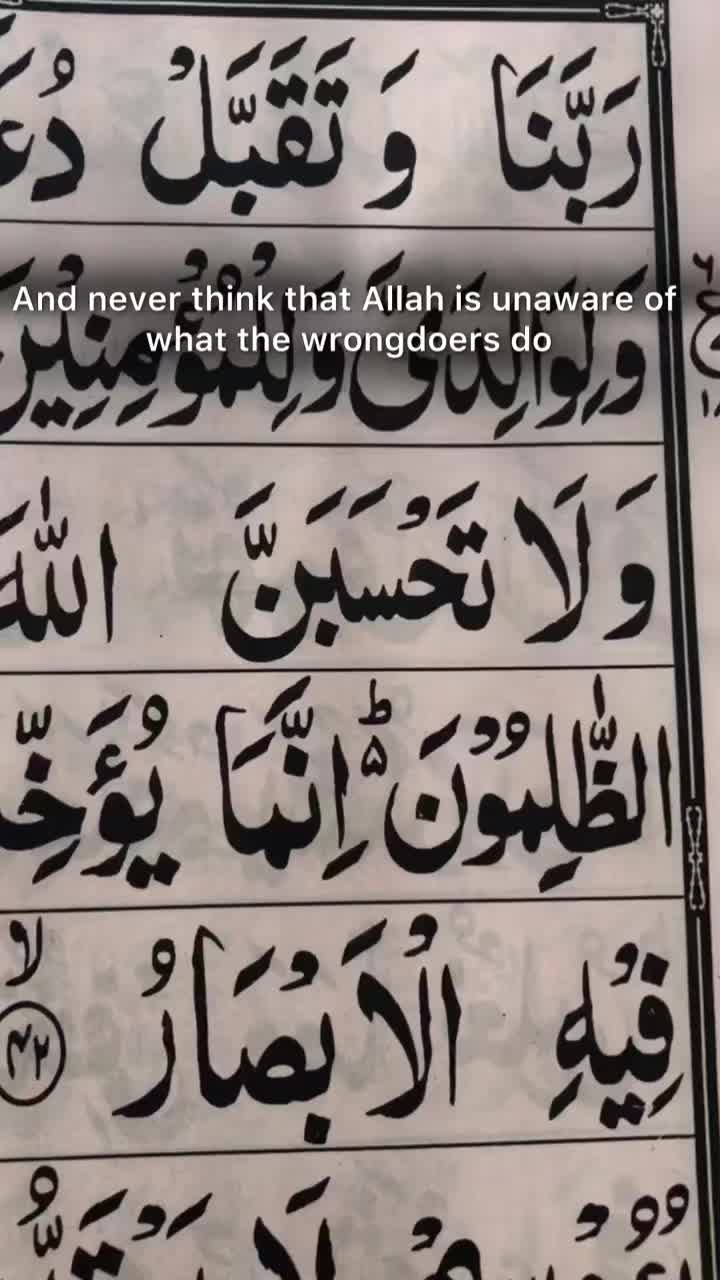 رَبَّنَا وَ تَقَبَّلْ
And never think that Allah is unaware of
what the wrongdoers do
وَلِوَالِدَىَّ وَلِلْمُؤْمِنِيْنَ
وَلَا تَحْسَبَنَّ اللّٰهَ
الظّٰلِمُوْنَ ؕ۵ اِنَّمَا
فِيْهِ الْاَبْصَارُ ۙ ۴۲